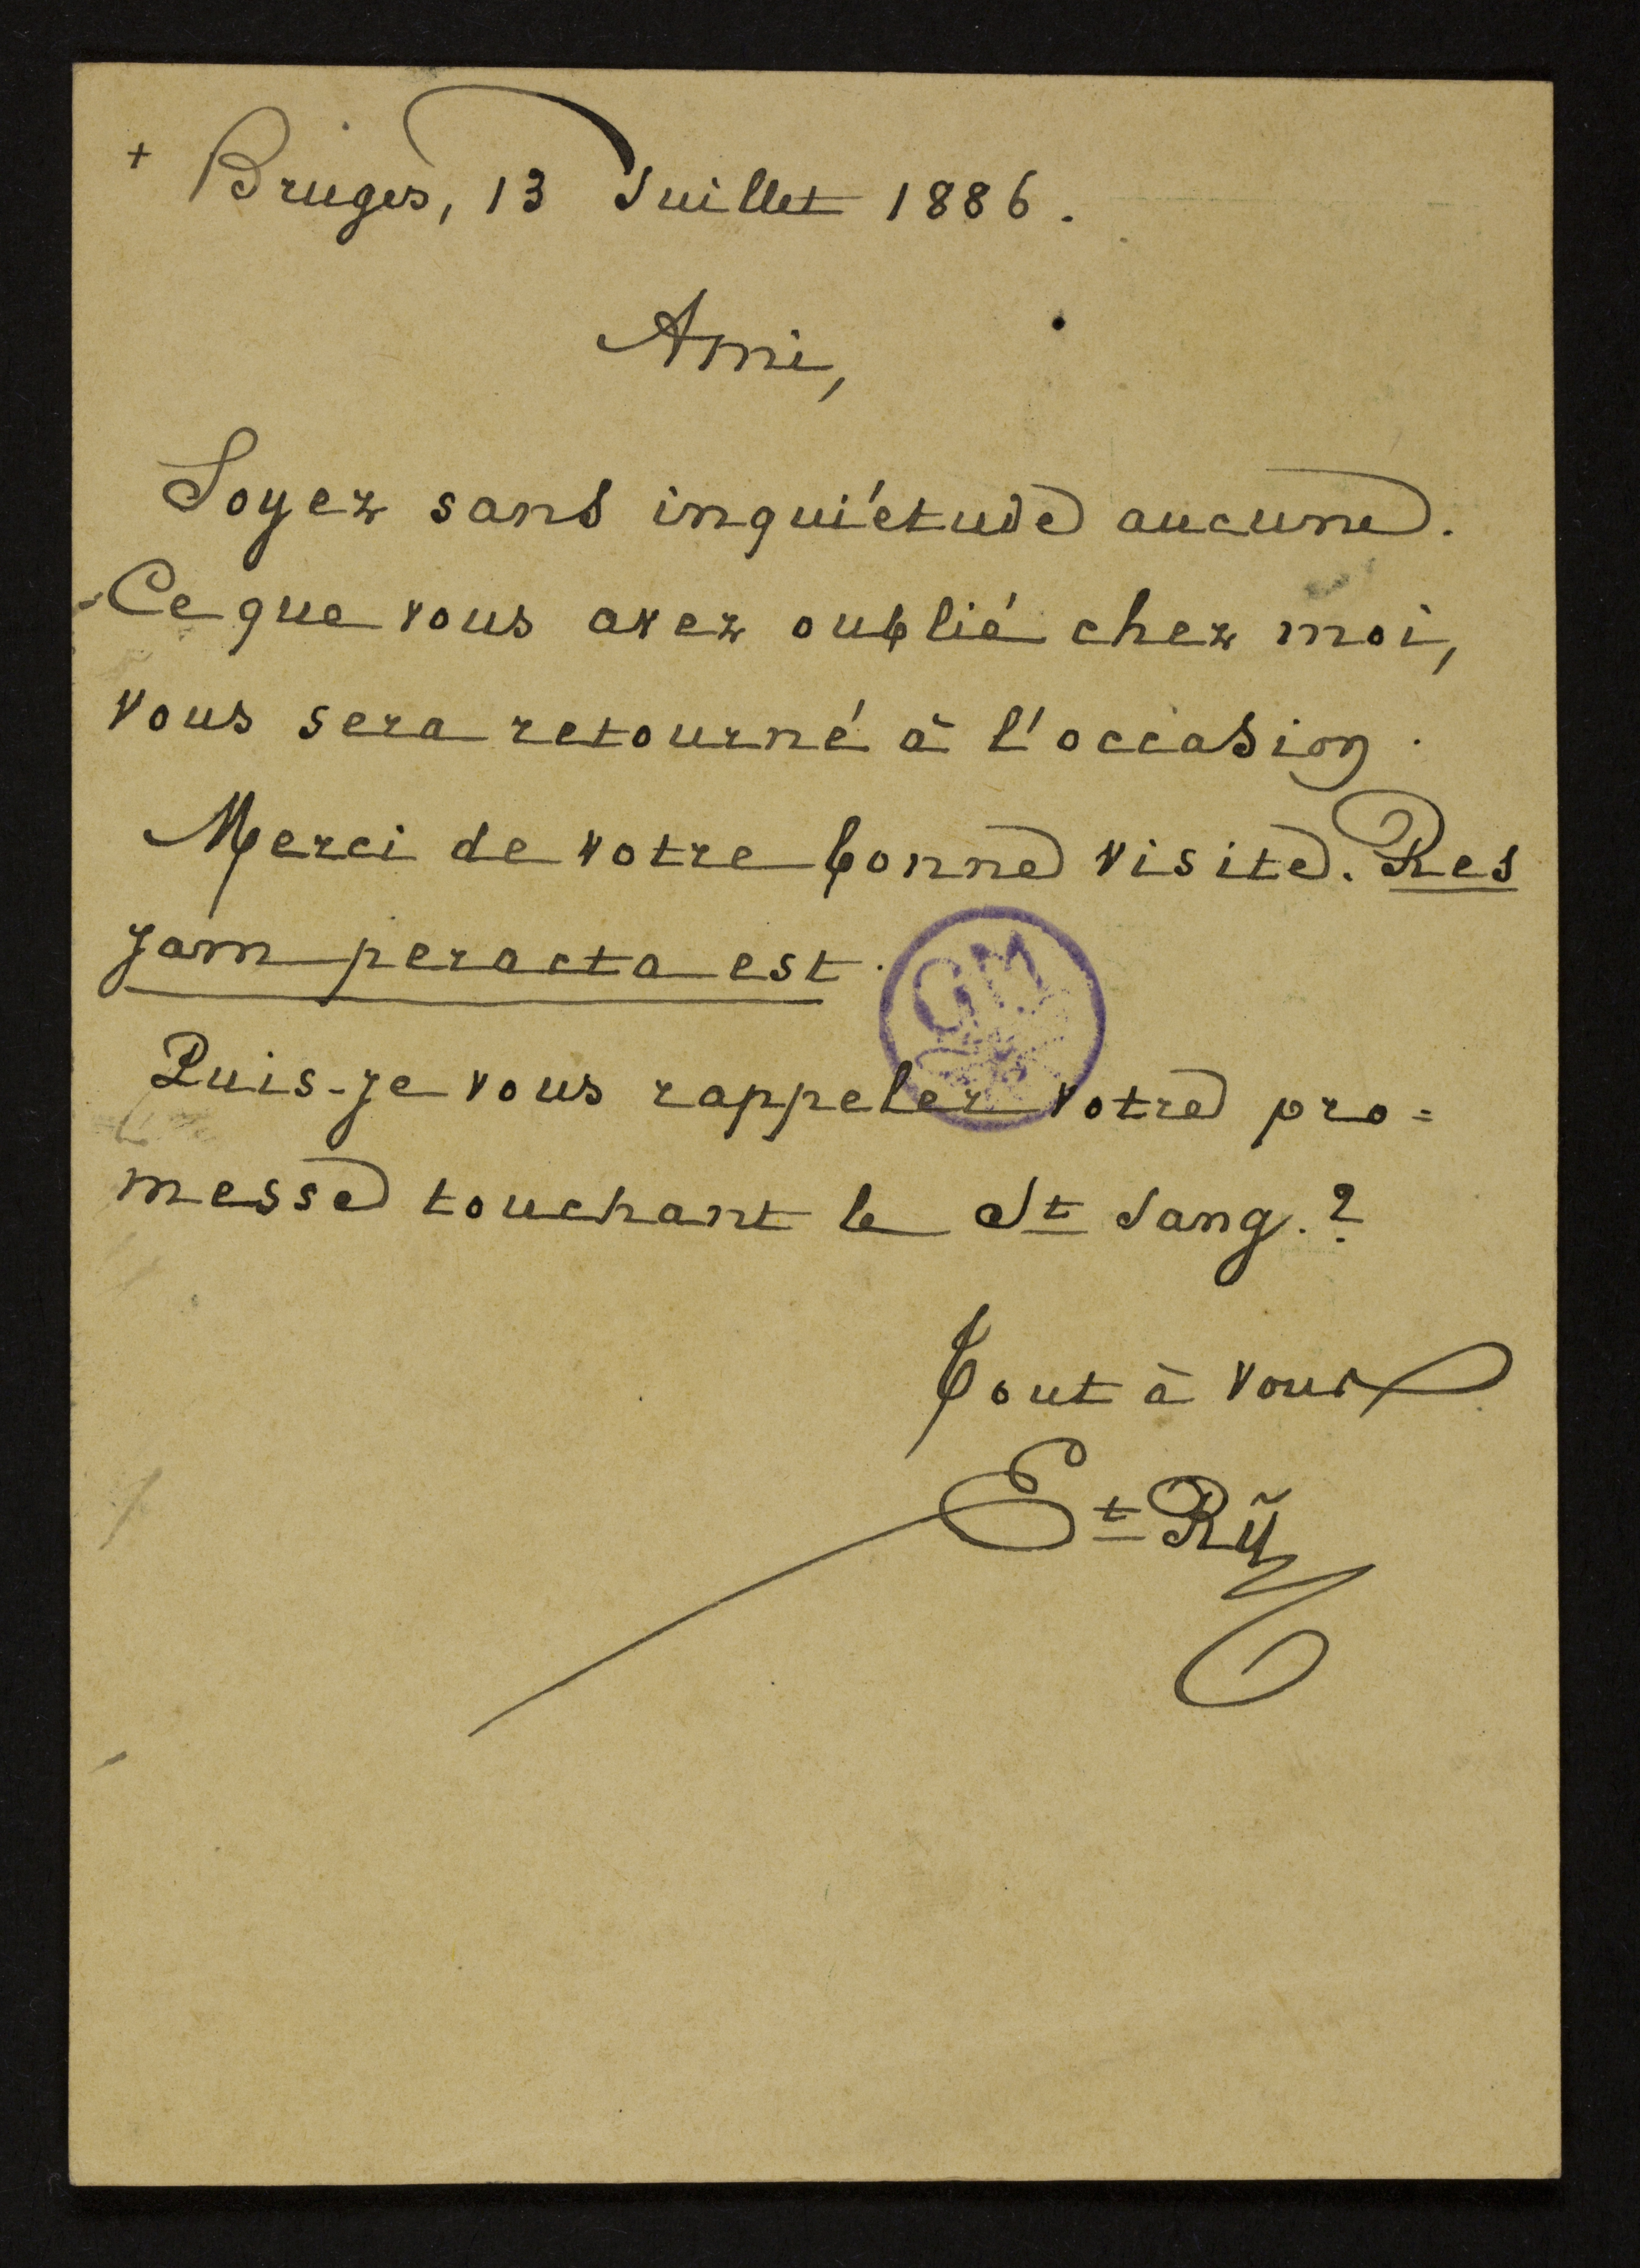 + Bruges, 13 Juillet 1886.
Ami,
Soyez sans inquiétude aucune.
Ce que vous avez oublié chez moi,
vous sera retourné à l'occasion.
Merci de votre bonne visite. Res
jam peracta est.
GM
Puis-je vous rappeler votre pro=
messe touchant le St Sang.?
Tout à vous
Et Rÿ